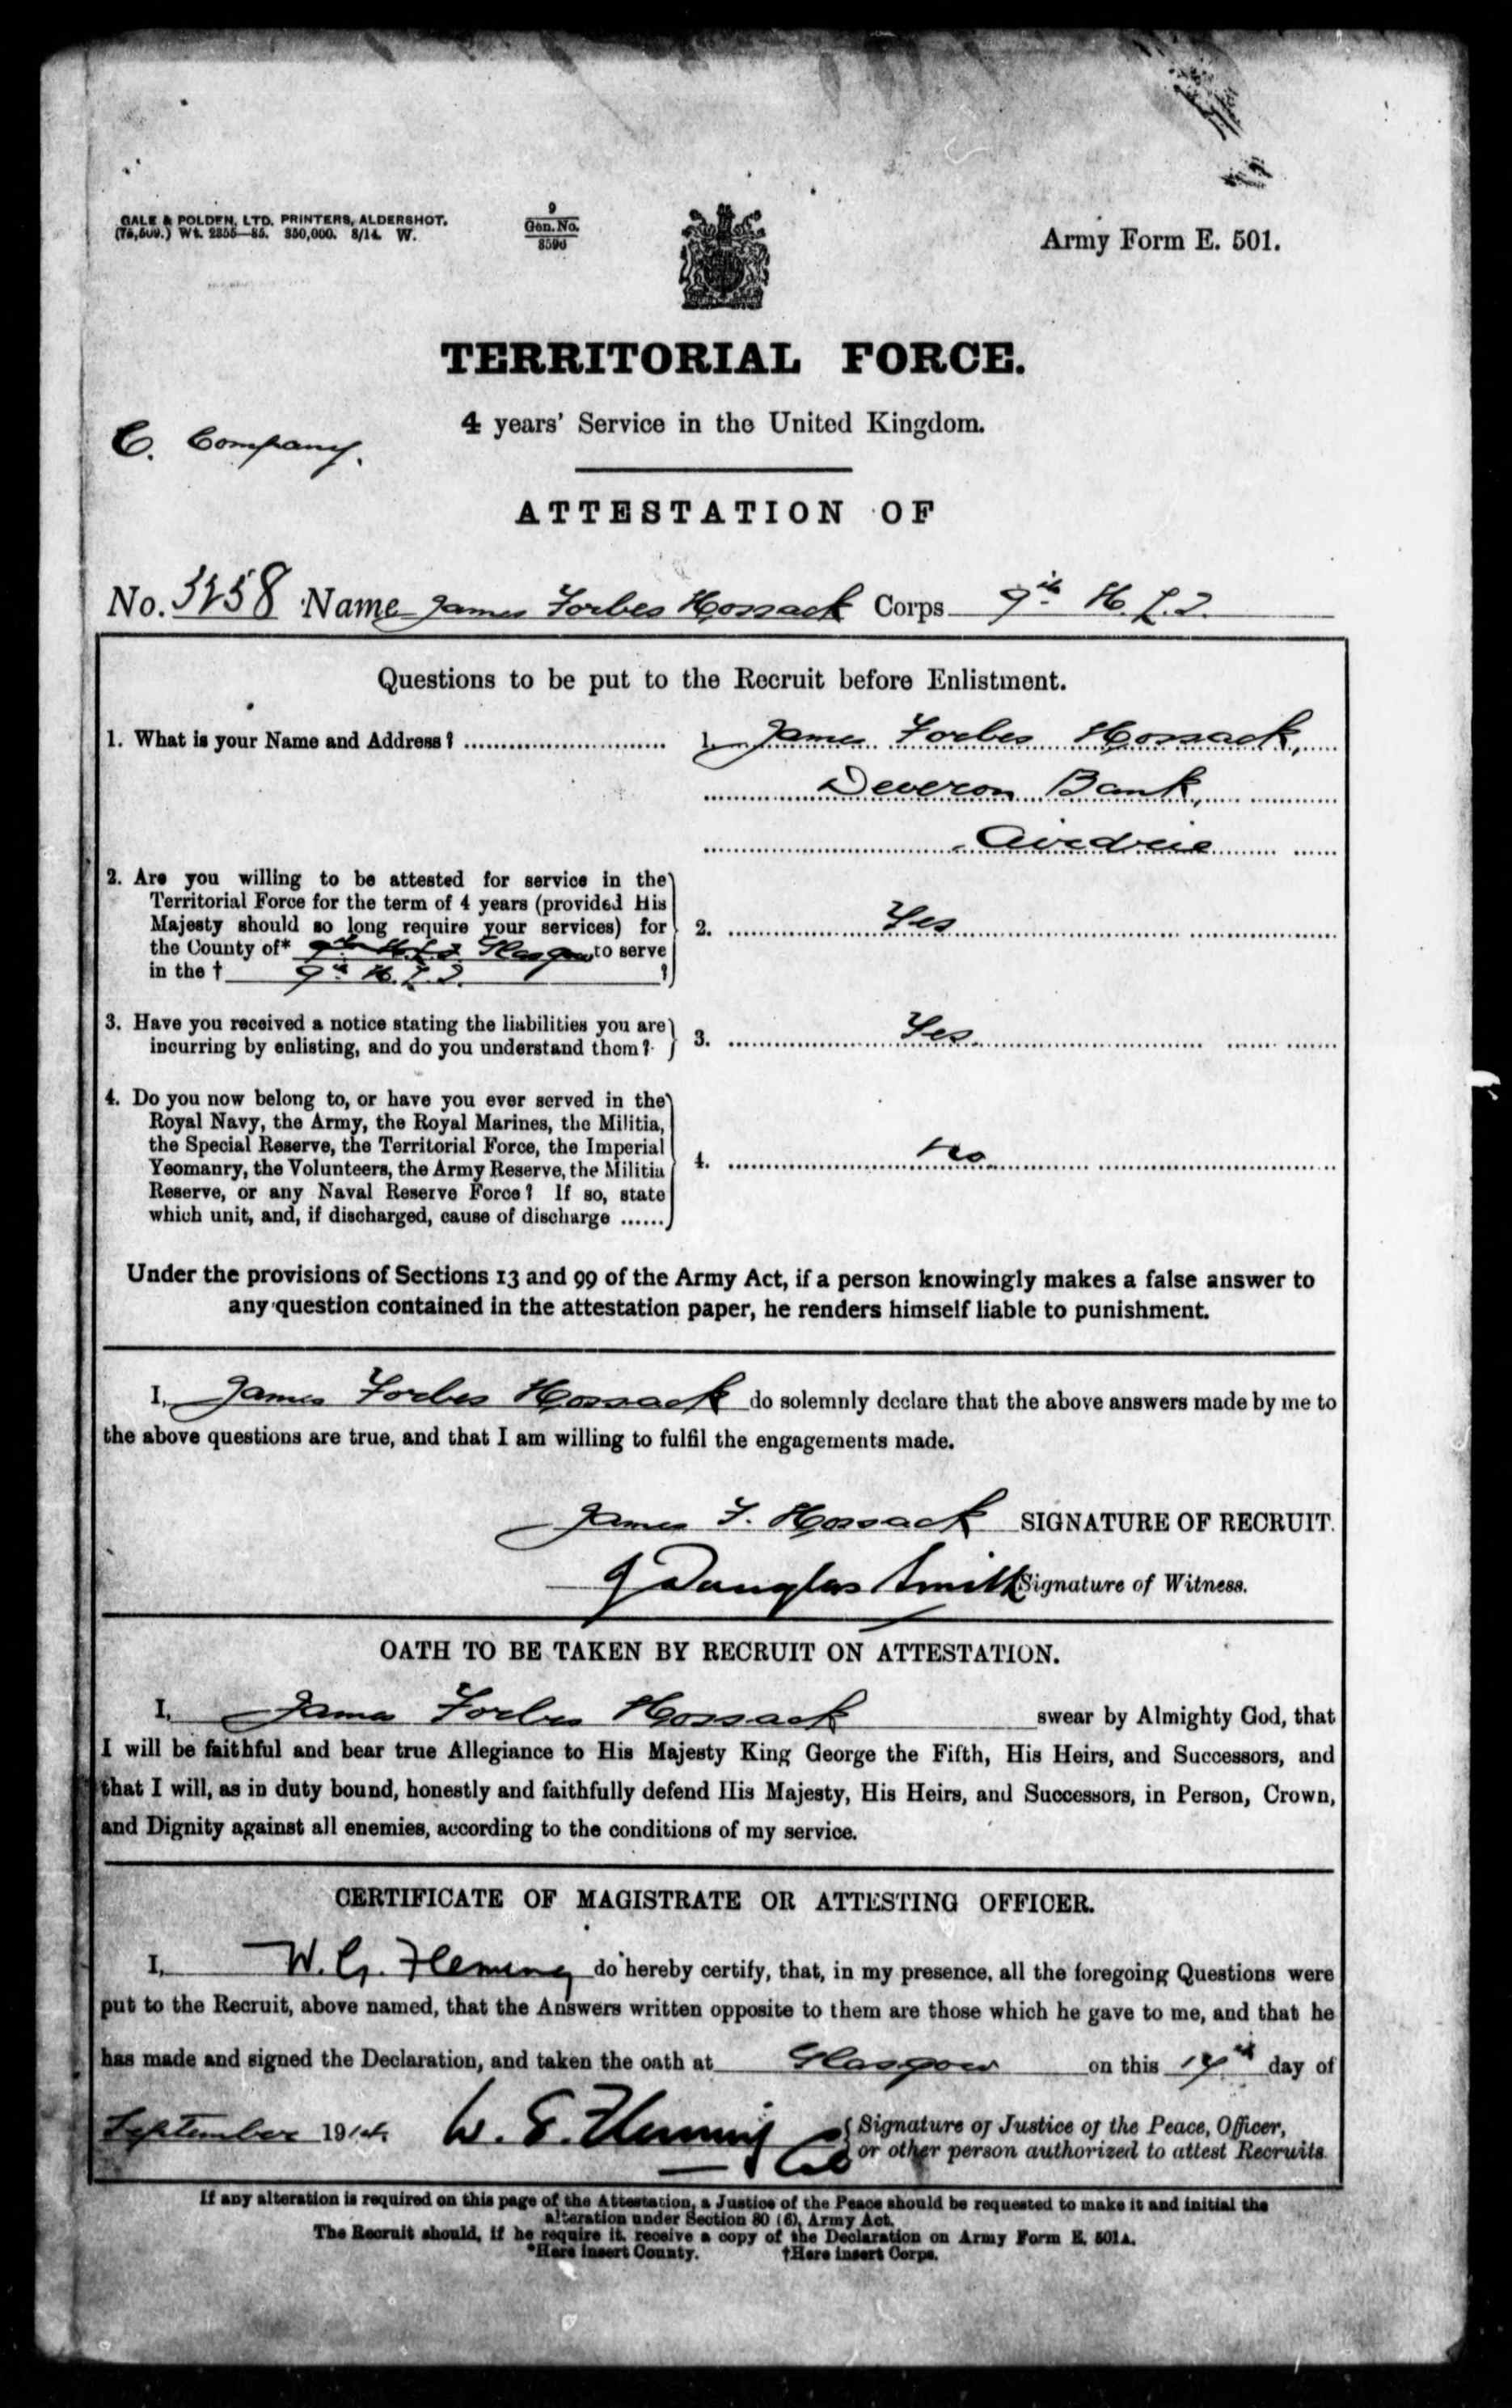 GALE & POLDEN, LTD. PRINTERS, ALDERSHOT.
Wt. 2355—85. 350,000. 8/14 W.
9
Gen. No.
Army Form E. 501.
TERRITORIAL FORCE.
4 years' Service in the United Kingdom.
C. Company.
ATTESTATION OF
No. Name James Forbes Hossack Corps 9th H.L.I.
Questions to be put to the Recruit before Enlistment.
1. What is your Name and Address? 1. James Forbes Hossack,
Deveron Bank,
Airdrie
2. Are you willing to be attested for service in the
Territorial Force for the term of 4 years (provided His
Majesty should so long require your services) for 2. Yes
the County of* 9th H.L.I. Glasgow to serve
in the † 9th H.L.I. ?
3. Have you received a notice stating the liabilities you are
incurring by enlisting, and do you understand them? 3. Yes
4. Do you now belong to, or have you ever served in the
Royal Navy, the Army, the Royal Marines, the Militia,
the Special Reserve, the Territorial Force, the Imperial
Yeomanry, the Volunteers, the Army Reserve, the Militia 4. No
Reserve, or any Naval Reserve Force? If so, state
which unit, and, if discharged, cause of discharge ......
Under the provisions of Sections 13 and 99 of the Army Act, if a person knowingly makes a false answer to
any question contained in the attestation paper, he renders himself liable to punishment.
I, James Forbes Hossack do solemnly declare that the above answers made by me to
the above questions are true, and that I am willing to fulfil the engagements made.
James F. Hossack SIGNATURE OF RECRUIT.
J Douglas Smith Signature of Witness.
OATH TO BE TAKEN BY RECRUIT ON ATTESTATION.
I, James Forbes Hossack swear by Almighty God, that
I will be faithful and bear true Allegiance to His Majesty King George the Fifth, His Heirs, and Successors, and
that I will, as in duty bound, honestly and faithfully defend His Majesty, His Heirs, and Successors, in Person, Crown,
and Dignity against all enemies, according to the conditions of my service.
CERTIFICATE OF MAGISTRATE OR ATTESTING OFFICER.
I, W. G. Fleming do hereby certify, that, in my presence, all the foregoing Questions were
put to the Recruit, above named, that the Answers written opposite to them are those which he gave to me, and that he
has made and signed the Declaration, and taken the oath at Glasgow on this day of
September 1914. W. G. Fleming Signature of Justice of the Peace, Officer,
or other person authorized to attest Recruits.
If any alteration is required on this page of the Attestation, a Justice of the Peace should be requested to make it and initial the
alteration under Section 80 (6), Army Act.
The Recruit should, if he require it, receive a copy of the Declaration on Army Form E. 501A.
*Here insert County. †Here insert Corps.